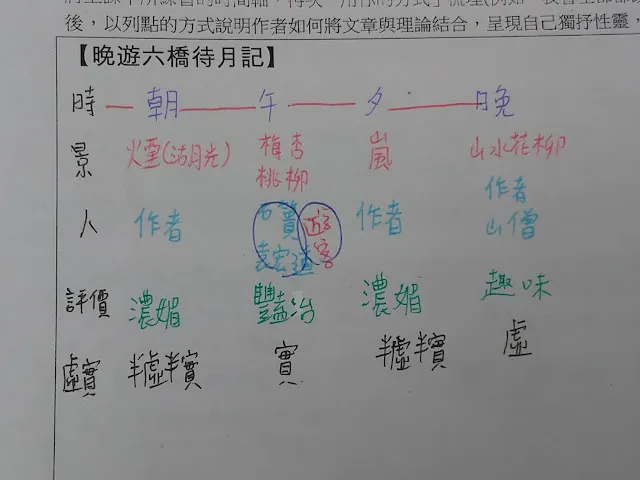 後，以列點的方式說明作者如何將文章與理論結合，呈現自己獨抒性靈，
【晚遊六橋待月記】
時 朝 午 夕 晚
景 火堙(沽月光) 梅杏 嵐 山水花柳
桃柳
人 作者 石簣 遊客 作者 作者
袁宏道 山僧
評價 濃媚 豔冶 濃媚 趣味
虛實 半虛半實 實 半虛半實 虛